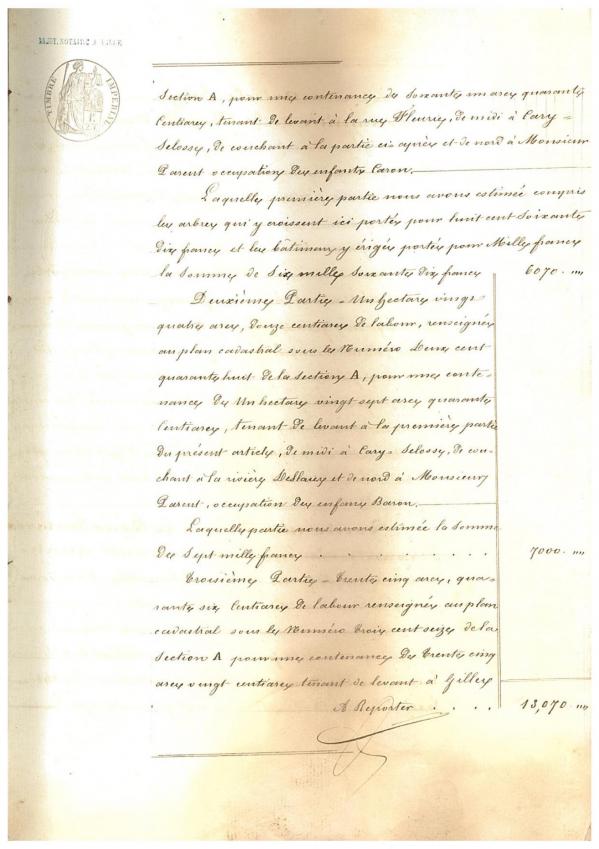 NOTAIRE À LILLE
TIMBRE IMPÉRIAL
Section A, pour une contenance de Soixante un ares quarante
Centiares, tenant de levant à la rue Fleurie, de midi à Cary-
Selosse, de couchant à la partie ci-après et de nord à Monsieur
Parent occupation des enfants Caron.
Laquelle première partie nous avons estimée compris
les arbres qui y croissent ici portés pour huit cent Soixante
dix francs et les bâtiments y érigés portés pour Mille francs
la somme de Six mille soixante dix francs 6070 . ""
Deuxième Partie - Un hectare vingt
quatre ares, douze centiares de labour, renseignés
au plan cadastral sous le Numéro Deux cent
quarante huit de la section A, pour une conte-
nance de Un hectare vingt sept ares quarante
Centiares, tenant de levant à la première partie
du présent article, de midi à Cary-Selosse, de cou-
chant à la rivière et de nord à Monsieur
Parent, occupation des enfans Baron.
Laquelle partie nous avons estimée la Somme
de Sept mille francs . . . . . . . . 7000 . ""
Troisième Partie - Trente cinq ares, qua-
rante six Centiares de labour renseignés au plan
cadastral sous le Numéro Trois cent seize de la
Section A pour une contenance de Trente cinq
ares vingt centiares tenant de levant à Gilles
A Reporter . . . . 13,070 ""